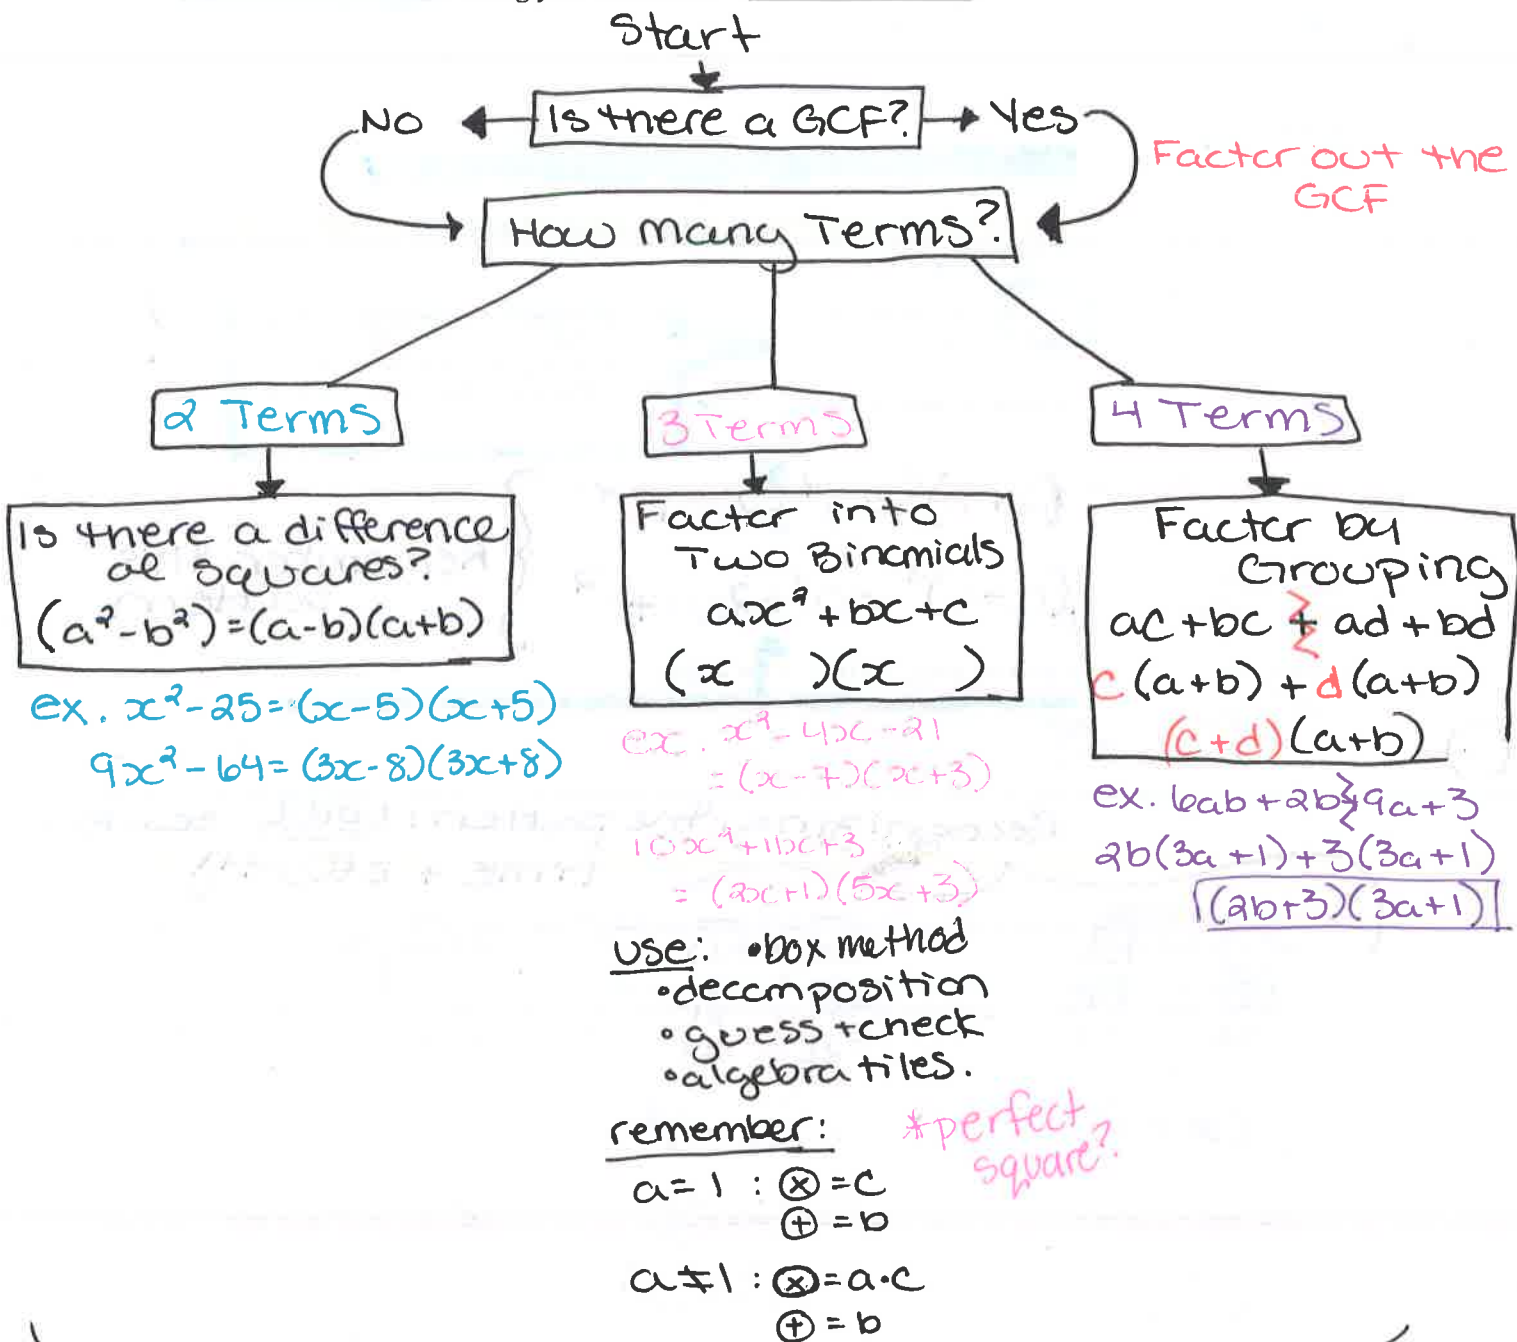 Start
Is there a GCF?
No
Yes
Factor out the
GCF
How many Terms?
2 Terms
Is there a difference
of squares?
(a²-b²)=(a-b)(a+b)
ex. x²-25=(x-5)(x+5)
9x²-64=(3x-8)(3x+8)
3 Terms
Factor into
Two Binomials
ax²+bx+c
(x )(x )
ex. x²-4x-21
=(x-7)(x+3)
10x²+11x+3
=(2x+1)(5x+3)
use: •box method
•decomposition
•guess+check
•algebra tiles.
remember:
*perfect
square?
a=1 : ⊗=c
⊕=b
a≠1 : ⊗=a·c
⊕=b
4 Terms
Factor by
Grouping
ac+bc + ad+bd
c(a+b)+d(a+b)
(c+d)(a+b)
ex. 6ab+2b+9a+3
2b(3a+1)+3(3a+1)
(2b+3)(3a+1)